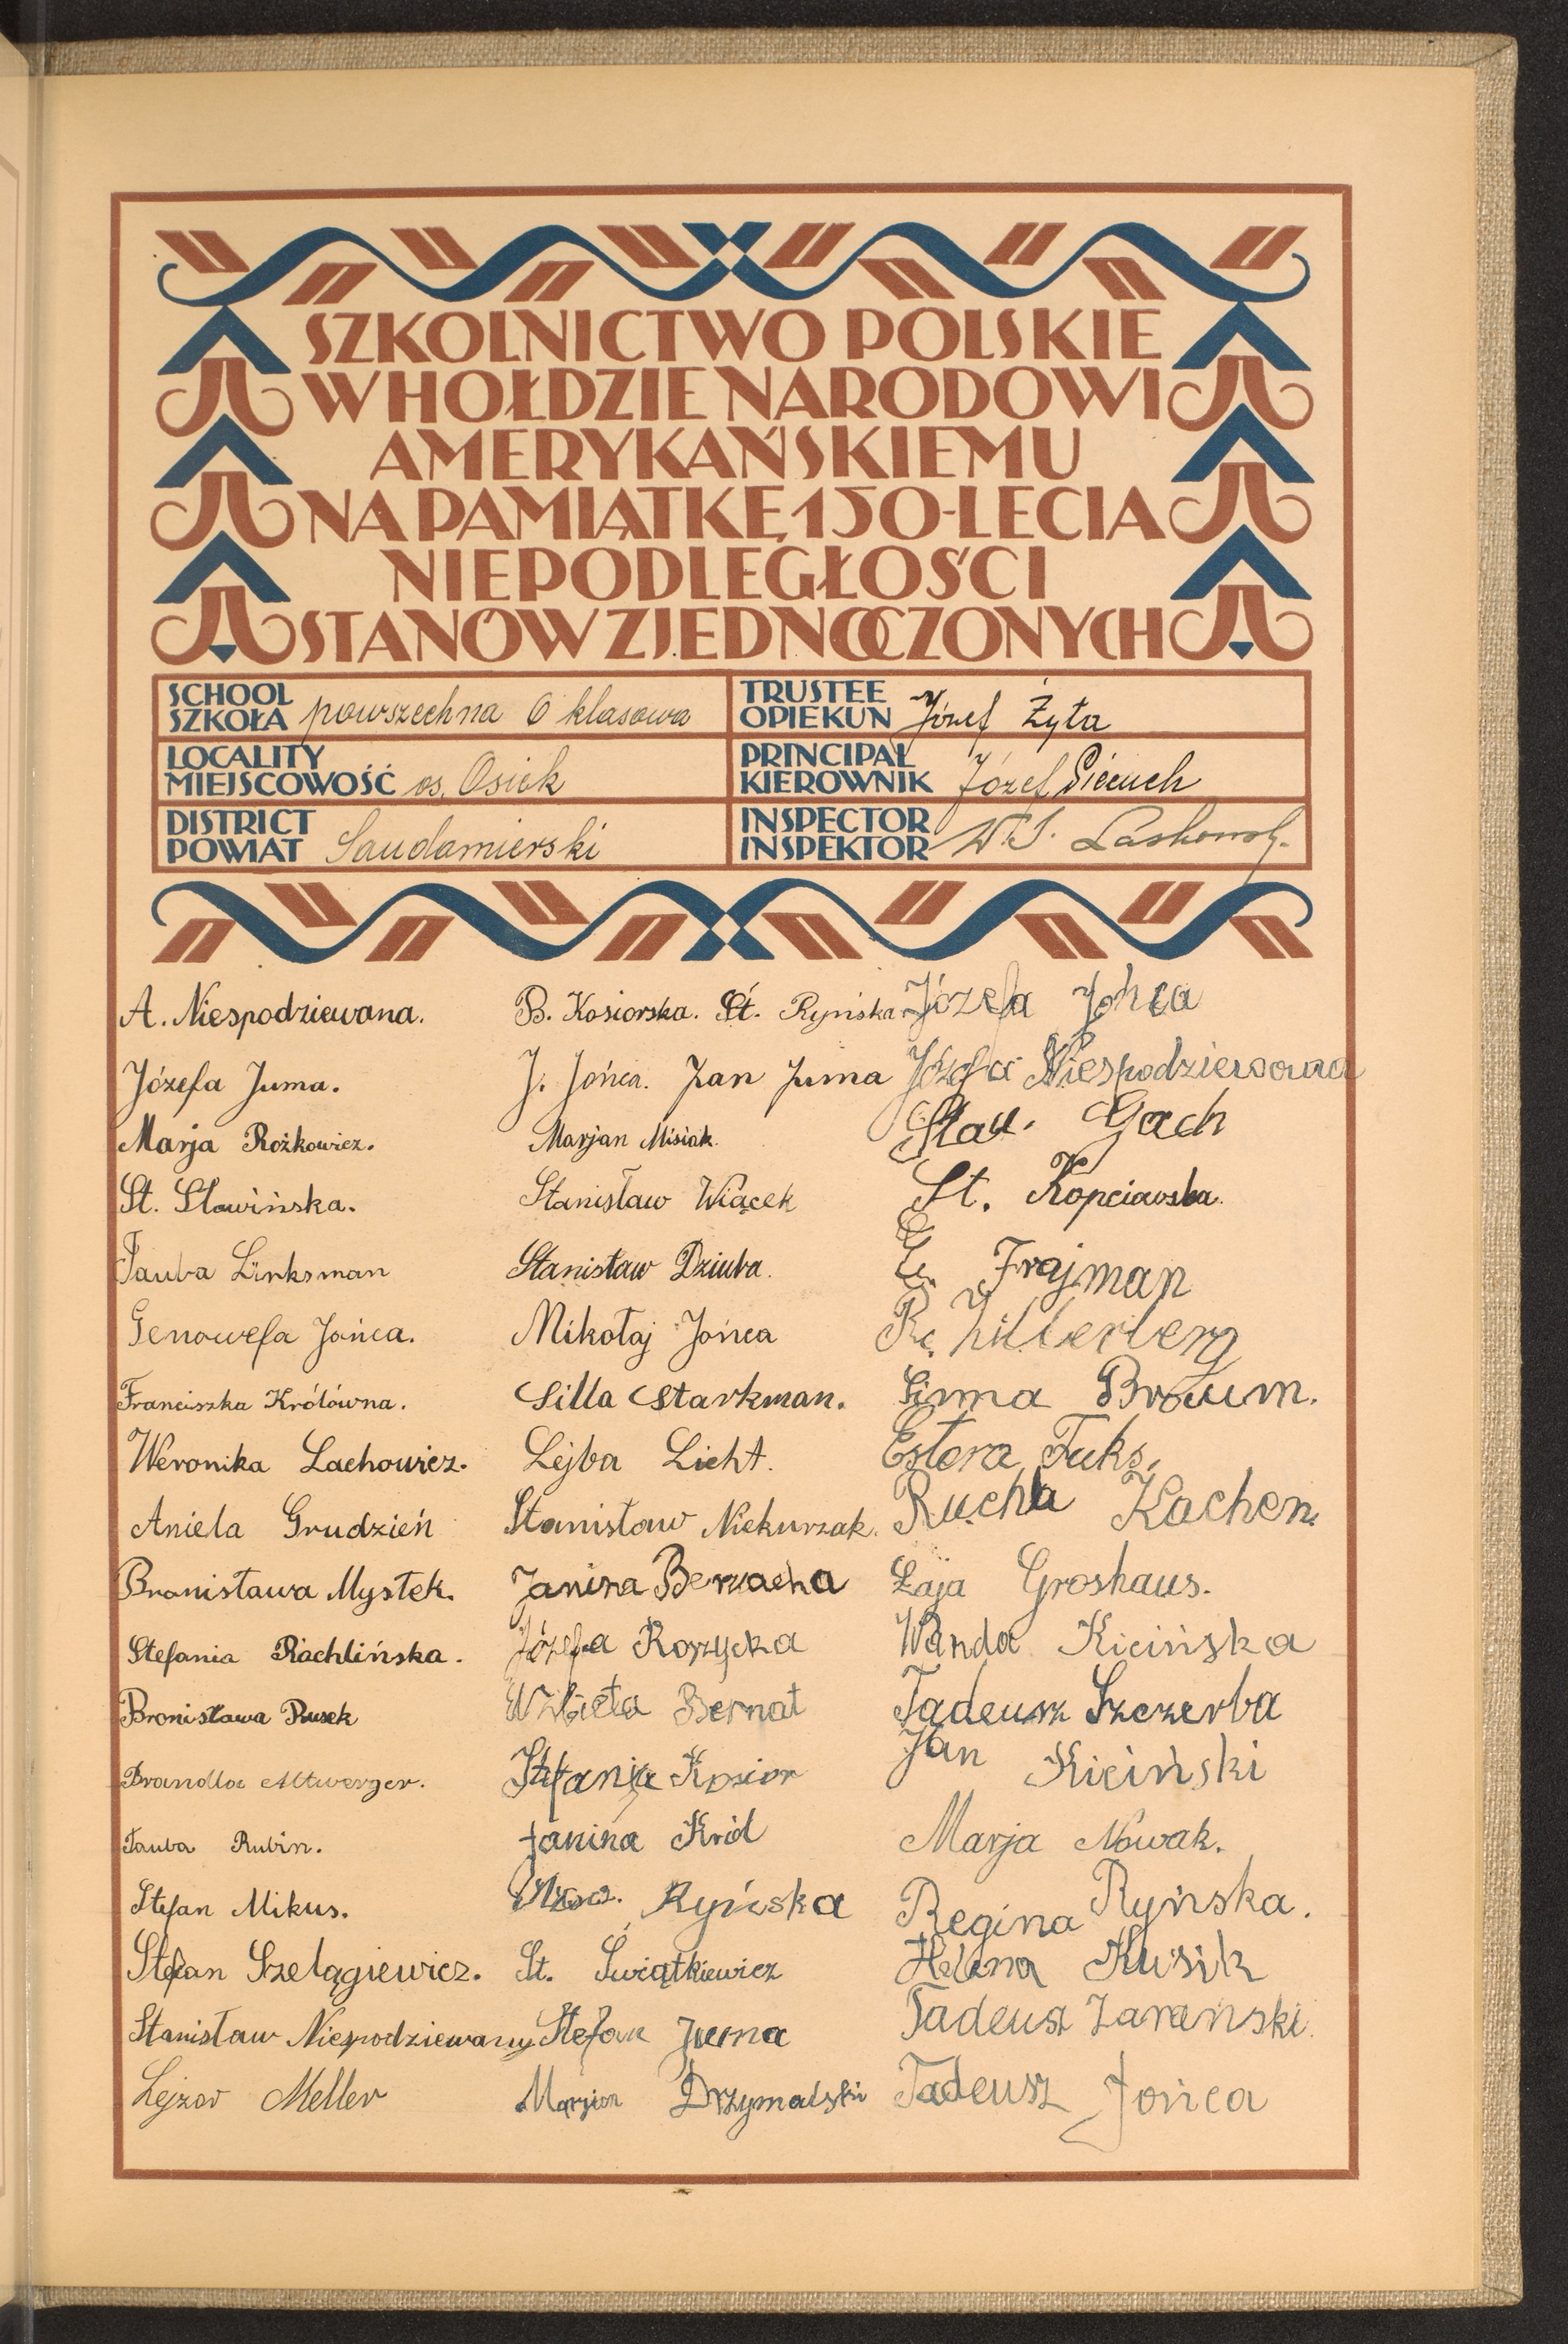 SZKOLNICTWO POLSKIE
W HOŁDZIE NARODOWI
AMERYKAŃSKIEMU
NA PAMIĄTKĘ 150-LECIA
NIEPODLEGŁOŚCI
STANÓW ZJEDNOCZONYCH
SCHOOL
SZKOŁA powszechna 6 klasowa
TRUSTEE
OPIEKUN Józef Żyła
LOCALITY
MIEJSCOWOŚĆ os. Osiek
PRINCIPAL
KIEROWNIK Józef Pieciuch
DISTRICT
POWIAT Sandomierski
INSPECTOR
INSPEKTOR
A. Niespodziewana.
Józefa Juma.
Marja Rożkowicz.
St. Sławińska.
Tauba Linksman
Genowefa Jońca.
Franciszka Królówna.
Weronika Lachowicz.
Aniela Grudzień
Bronisława Mysłek.
Stefania Rachlińska.
Bronisława Rusek
Brandla Altwerger.
Tauba Rubin.
Stefan Mikus.
Stefan Szelągiewicz.
Stanisław Niespodziewany
Lejzor Meller
B. Kosiorska. St. Ryńska
J. Jońca. Jan Juma
Marjan Misiak.
Stanisław Wiącek
Stanisław Dziuba.
Mikołaj Jońca
Silla Starkman.
Lejba Licht.
Stanisław Niekurzak.
Janina Bernacha
Józefa Rozycka
Bernat
Stefanja Kosior
Janina Król
Ryńska
St. Świątkiewicz
Stefan Juma
Marjan Drzymalski
Józefa Jońca
Józefa Niespodziewana
Stan. Gach
St. Kopciowska.
Frajman
Zilberberg
Sima Braum.
Estera Fuks.
Ruchla Kachen.
Łaja Groshaus.
Wanda Kicińska
Tadeusz Szczerba
Jan Kiciński
Marja Nowak.
Regina Ryńska.
Helena Kusik
Tadeusz Zarański.
Tadeusz Jońca